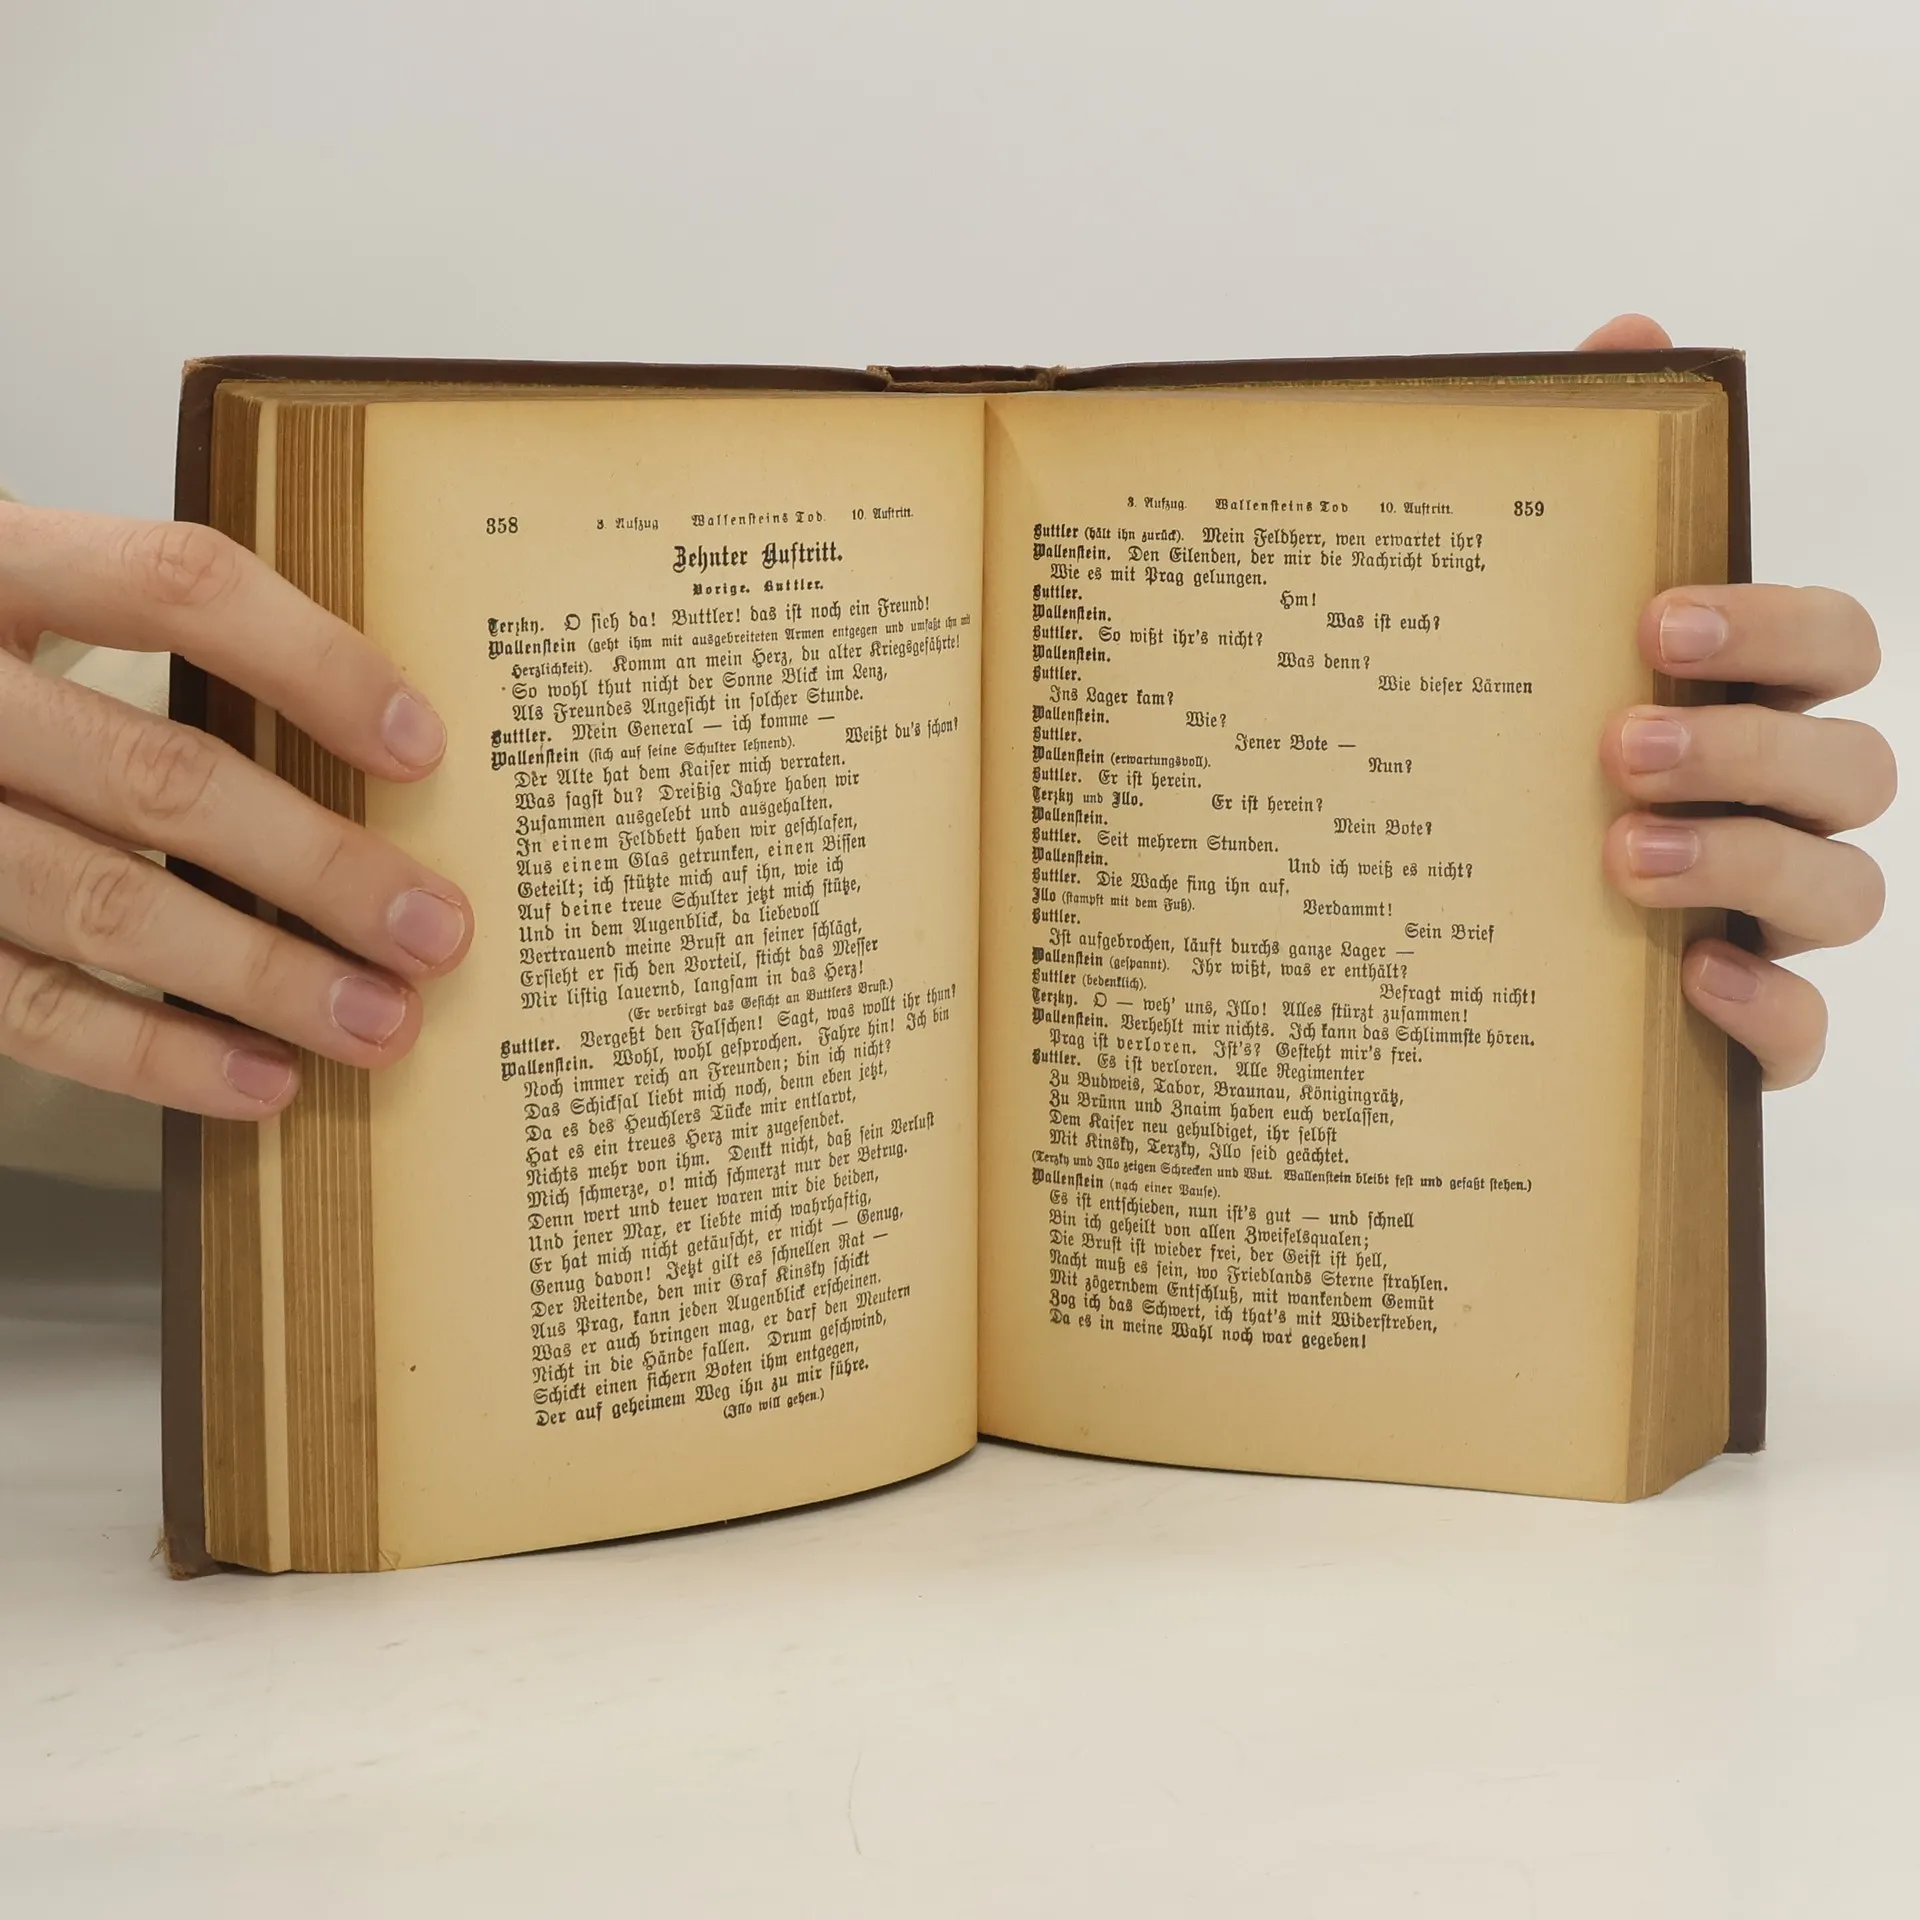 358 3. Aufzug Wallensteins Tod. 10. Auftritt.
Zehnter Auftritt.
Vorige. Buttler.
Terzky. O sieh da! Buttler! das ist noch ein Freund!
Wallenstein (geht ihm mit ausgebreiteten Armen entgegen und umfaßt ihn mit
Herzlichkeit). Komm an mein Herz, du alter Kriegsgefährte!
So wohl thut nicht der Sonne Blick im Lenz,
Als Freundes Angesicht in solcher Stunde.
Buttler. Mein General — ich komme —
Wallenstein (sich auf seine Schulter lehnend). Weißt du's schon?
Der Alte hat dem Kaiser mich verraten.
Was sagst du? Dreißig Jahre haben wir
Zusammen ausgelebt und ausgehalten.
In einem Feldbett haben wir geschlafen,
Aus einem Glas getrunken, einen Bissen
Geteilt; ich stützte mich auf ihn, wie ich
Auf deine treue Schulter jetzt mich stütze,
Und in dem Augenblick, da liebevoll
Vertrauend meine Brust an seiner schlägt,
Ersieht er sich den Vorteil, sticht das Messer
Mir listig lauernd, langsam in das Herz!
(Er verbirgt das Gesicht an Buttlers Brust.)
Buttler. Vergeßt den Falschen! Sagt, was wollt ihr thun?
Wallenstein. Wohl, wohl gesprochen. Fahre hin! Ich bin
Noch immer reich an Freunden; bin ich nicht?
Das Schicksal liebt mich noch, denn eben jetzt,
Da es des Heuchlers Tücke mir entlarvt,
Hat es ein treues Herz mir zugesendet.
Nichts mehr von ihm. Denkt nicht, daß sein Verlust
Mich schmerze, o! mich schmerzt nur der Betrug.
Denn wert und teuer waren mir die beiden,
Und jener Max, er liebte mich wahrhaftig,
Er hat mich nicht getäuscht, er nicht — Genug,
Genug davon! Jetzt gilt es schnellen Rat —
Der Reitende, den mir Graf Kinsky schickt
Aus Prag, kann jeden Augenblick erscheinen.
Was er auch bringen mag, er darf den Meutern
Nicht in die Hände fallen. Drum geschwind,
Schickt einen sichern Boten ihm entgegen,
Der auf geheimem Weg ihn zu mir führe.
(Illo will gehen.)
3. Aufzug. Wallensteins Tod 10. Auftritt. 359
Buttler (hält ihn zurück). Mein Feldherr, wen erwartet ihr?
Wallenstein. Den Eilenden, der mir die Nachricht bringt,
Wie es mit Prag gelungen.
Buttler. Hm!
Wallenstein. Was ist euch?
Buttler. So wißt ihr's nicht?
Wallenstein. Was denn?
Buttler. Wie dieser Lärmen
Ins Lager kam?
Wallenstein. Wie?
Buttler. Jener Bote —
Wallenstein (erwartungsvoll). Nun?
Buttler. Er ist herein.
Terzky und Illo. Er ist herein?
Wallenstein. Mein Bote?
Buttler. Seit mehrern Stunden.
Wallenstein. Und ich weiß es nicht?
Buttler. Die Wache fing ihn auf.
Illo (stampft mit dem Fuß). Verdammt!
Buttler. Sein Brief
Ist aufgebrochen, läuft durchs ganze Lager —
Wallenstein (gespannt). Ihr wißt, was er enthält?
Buttler (bedenklich). Befragt mich nicht!
Terzky. O — weh' uns, Illo! Alles stürzt zusammen!
Wallenstein. Verhehlt mir nichts. Ich kann das Schlimmste hören.
Prag ist verloren. Ist's? Gesteht mir's frei.
Buttler. Es ist verloren. Alle Regimenter
Zu Budweis, Tabor, Braunau, Königingrätz,
Zu Brünn und Znaim haben euch verlassen,
Dem Kaiser neu gehuldiget, ihr selbst
Mit Kinsky, Terzky, Illo seid geächtet.
(Terzky und Illo zeigen Schrecken und Wut. Wallenstein bleibt fest und gefaßt stehen.)
Wallenstein (nach einer Pause).
Es ist entschieden, nun ist's gut — und schnell
Bin ich geheilt von allen Zweifelsqualen;
Die Brust ist wieder frei, der Geist ist hell,
Nacht muß es sein, wo Friedlands Sterne strahlen.
Mit zögerndem Entschluß, mit wankendem Gemüt
Zog ich das Schwert, ich that's mit Widerstreben,
Da es in meine Wahl noch war gegeben!